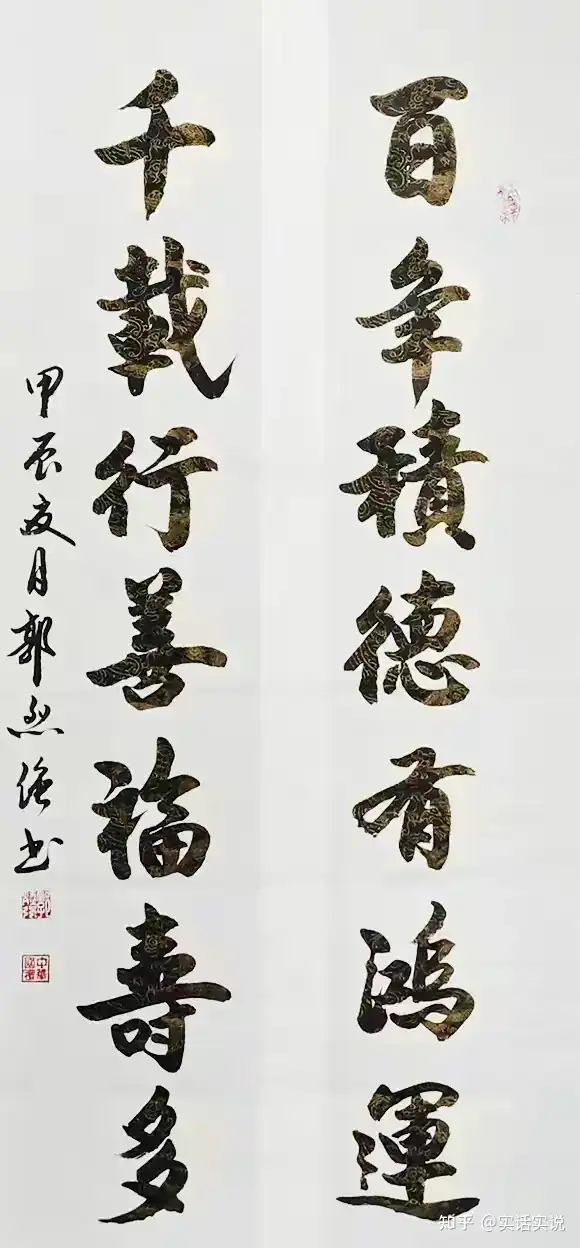 百年積德有鴻運
千載行善福壽多
甲辰夏月郭烈強书
知乎 @实话实说